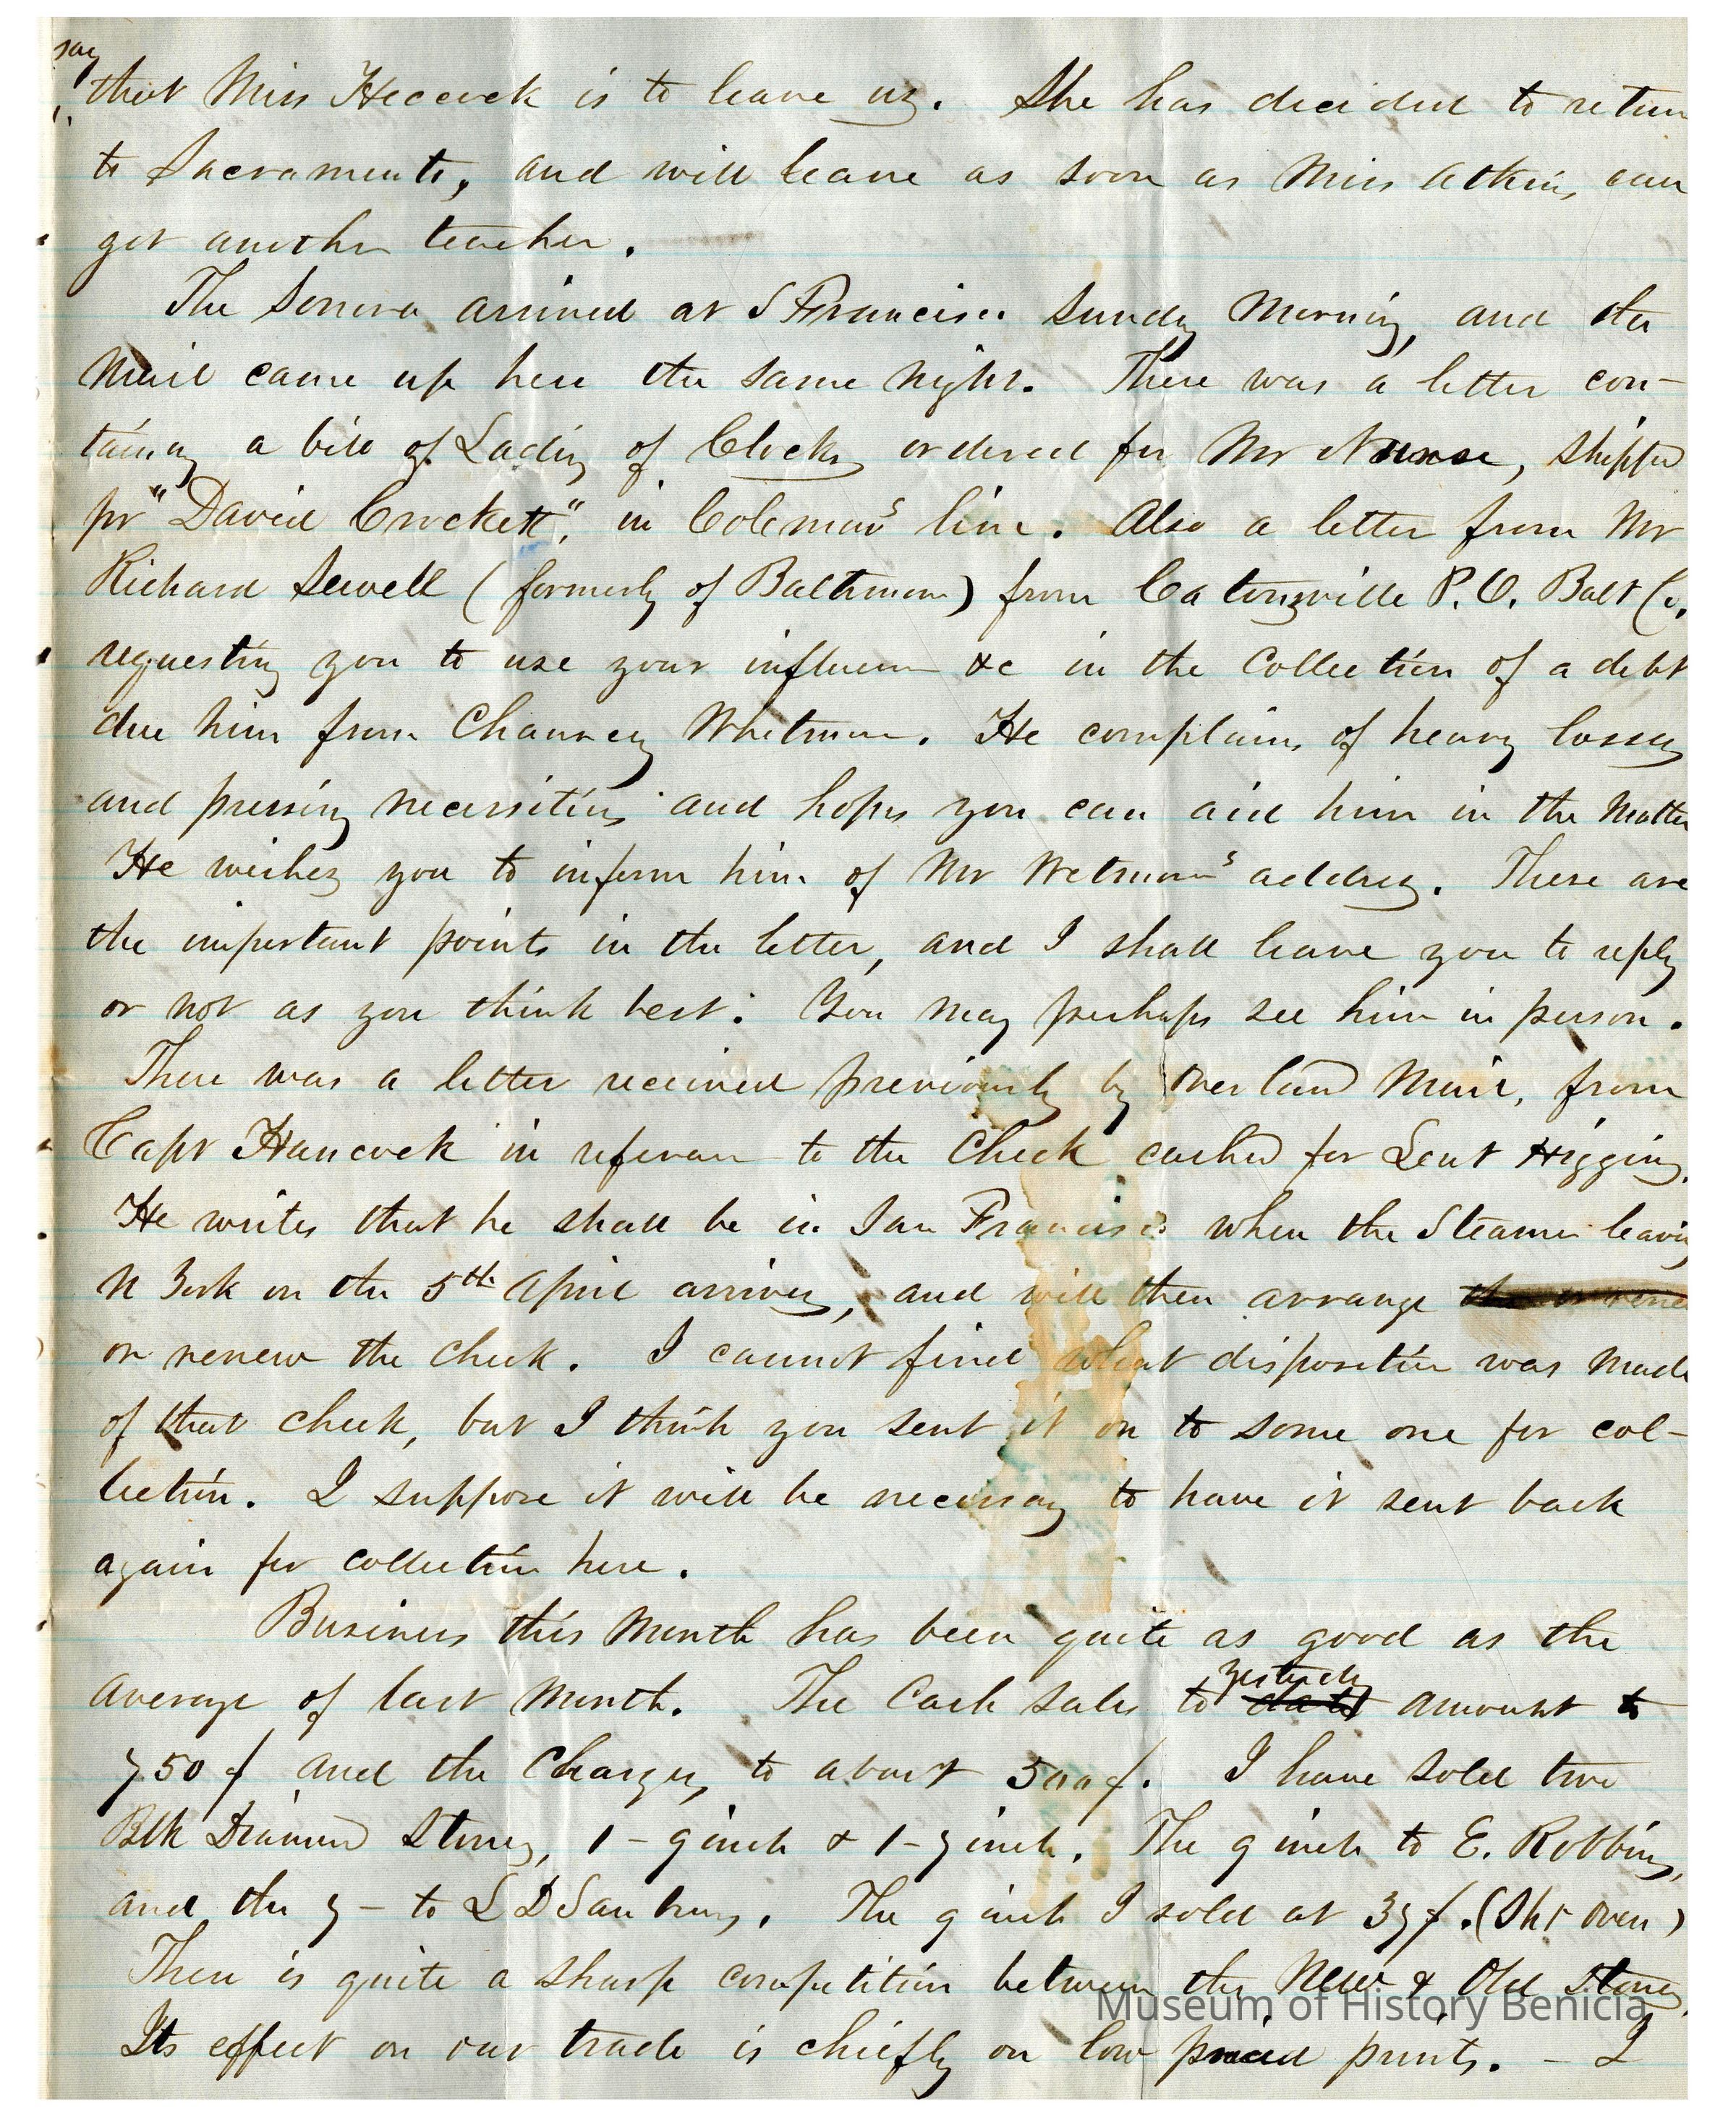 say
that Miss Hecock is to leave us. She has decided to return
to Sacramento, and will leave as soon as Miss Atkins can
get another teacher.
The Sonora arrived at S Francisco Sunday Morning, and the
Mail came up here the same night. There was a letter con-
taining a bill of Lading of Clocks ordered for Mr Nurse, shipped
pr "David Crockett", in Coleman's line. Also a letter from Mr
Richard Sewell (formerly of Baltimore) from Catonsville P.O. Balt Co.
requesting you to use your influence &c in the Collection of a debt
due him from Chauncey Whetmore. He complains of heavy losses
and pressing necessities and hopes you can aid him in the Matter
He wishes you to inform him of Mr Wetmore's address. These are
the important points in the letter, and I shall leave you to reply
or not as you think best. You may perhaps see him in person.
There was a letter received previously by Overland Mail, from
Capt Hancock in reference to the Check cashed for Leut Higgins.
He writes that he shall be in San Francisco when the Steamer leaving
N York on the 5th April arrives, and will then arrange
or renew the Check. I cannot find what disposition was made
of that check, but I think you sent it on to some one for col-
lection. I suppose it will be necessary to have it sent back
again for collection here.
Business this Month has been quite as good as the
average of last Month. The Cash sales to yesterday amount to
750$ and the Charges to about 500$. I have sold two
Blk Diamond Stoves, 1 - 9 inch & 1 - 7 inch. The 9 inch to E. Robbins,
and the 7 - to L D The 9 inch I sold at 37$. (Sht Oven)
There is quite a sharp competition between the New & Old Stores.
Its effect on our trade is chiefly on low priced prints. - I
Museum of History Benicia